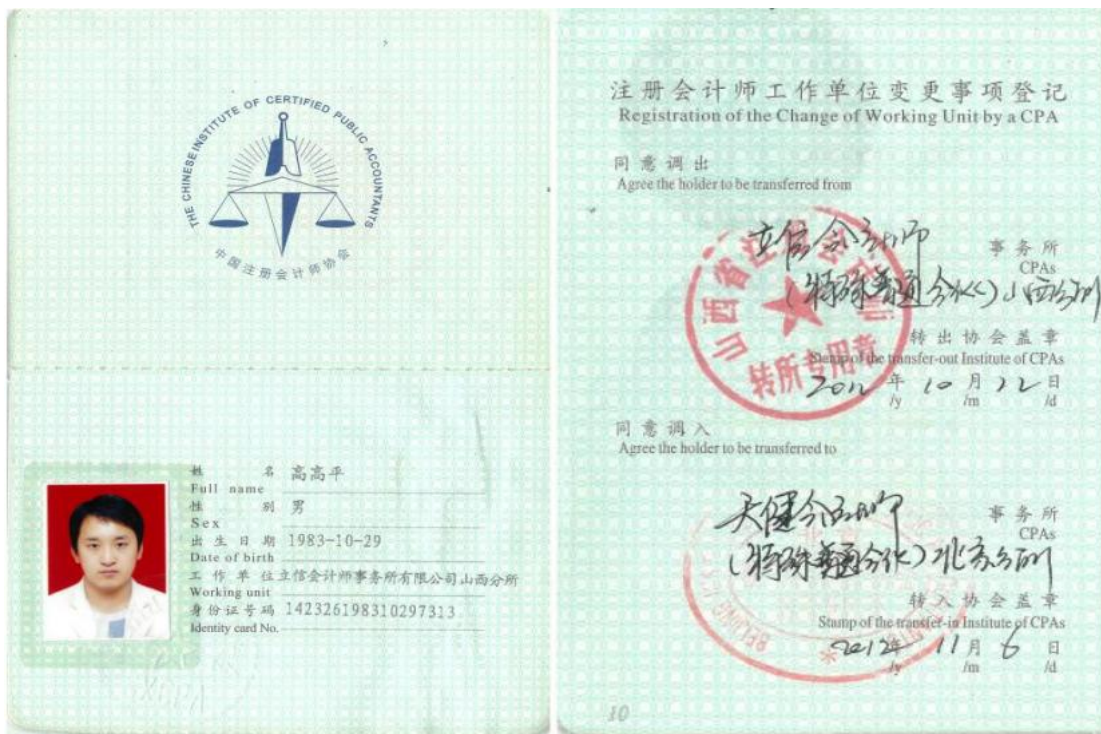 THE CHINESE INSTITUTE OF CERTIFIED PUBLIC ACCOUNTANTS
中国注册会计师协会
姓 名 高高平
Full name
性 别 男
Sex
出生日期 1983-10-29
Date of birth
工作单位 立信会计师事务所有限公司山西分所
Working unit
身份证号码 142326198310297313
Identity card No.
注册会计师工作单位变更事项登记
Registration of the Change of Working Unit by a CPA
同意调出
Agree the holder to be transferred from
立信会计师
事务所
CPAs
(特殊普通合伙)山西分所
山西省注册会计师
转所专用章
转出协会盖章
Stamp of the transfer-out Institute of CPAs
2012 年 10 月 22 日
/y /m /d
同意调入
Agree the holder to be transferred to
天健会计师
事务所
CPAs
(特殊普通合伙)北京分所
BEIJING
转入协会盖章
Stamp of the transfer-in Institute of CPAs
2012年 11 月 6 日
/y /m /d
10